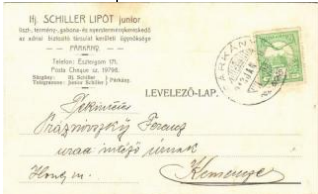 Ifj. SCHILLER LIPÓT junior
liszt-, termény-, gabona- és nyersterménykereskedő
az adriai biztosító társulat kerületi ügynöksége
PÁRKÁNY.
Telefon: Esztergom 171.
Posta Cheque sz. 19796.
Sürgöny: Ifj. Schiller
Telegramme: Junior Schiller
Párkány.
PÁRKÁNY
LEVELEZŐ-LAP.
Tekintetes
Ferenc
urad. intéző úrnak
Kemencze